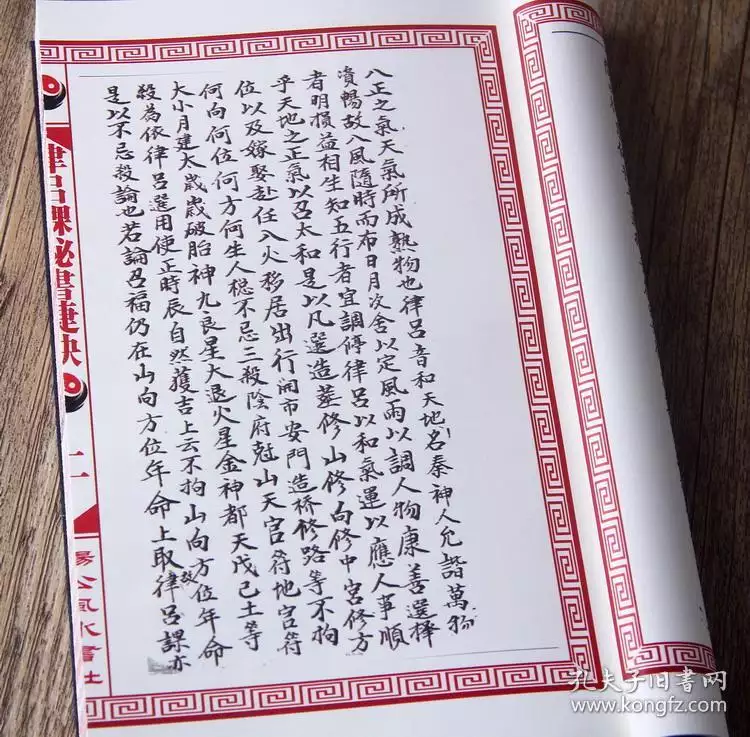 八正之氣天氣所成熟物也律呂音和天地名泰神人允諧萬物
資暢故八風隨時而布日月次舍以定風雨以調人物康善選擇
者明損益相生知五行者宜調停律呂以和氣運以應人事順
乎天地之正氣以召太和是以凡選造葬修山修向修中宮修方
位以及嫁娶赴任入火移居出行開市安門造橋修路等不拘
何向何位何方何生人總不忌三殺陰府尅山天官符地官符
大小月建大歲歲破胎神九良星大退火星金神都天戊己土等
殺為依律呂選用使正時辰自然獲吉上云不拘山向方位年命
是以不忌殺論也若論召福仍在山向方位年命上取律呂課亦
律呂課秘書捷訣
二
楊公風水書社
孔夫子旧書网
www.kongfz.com